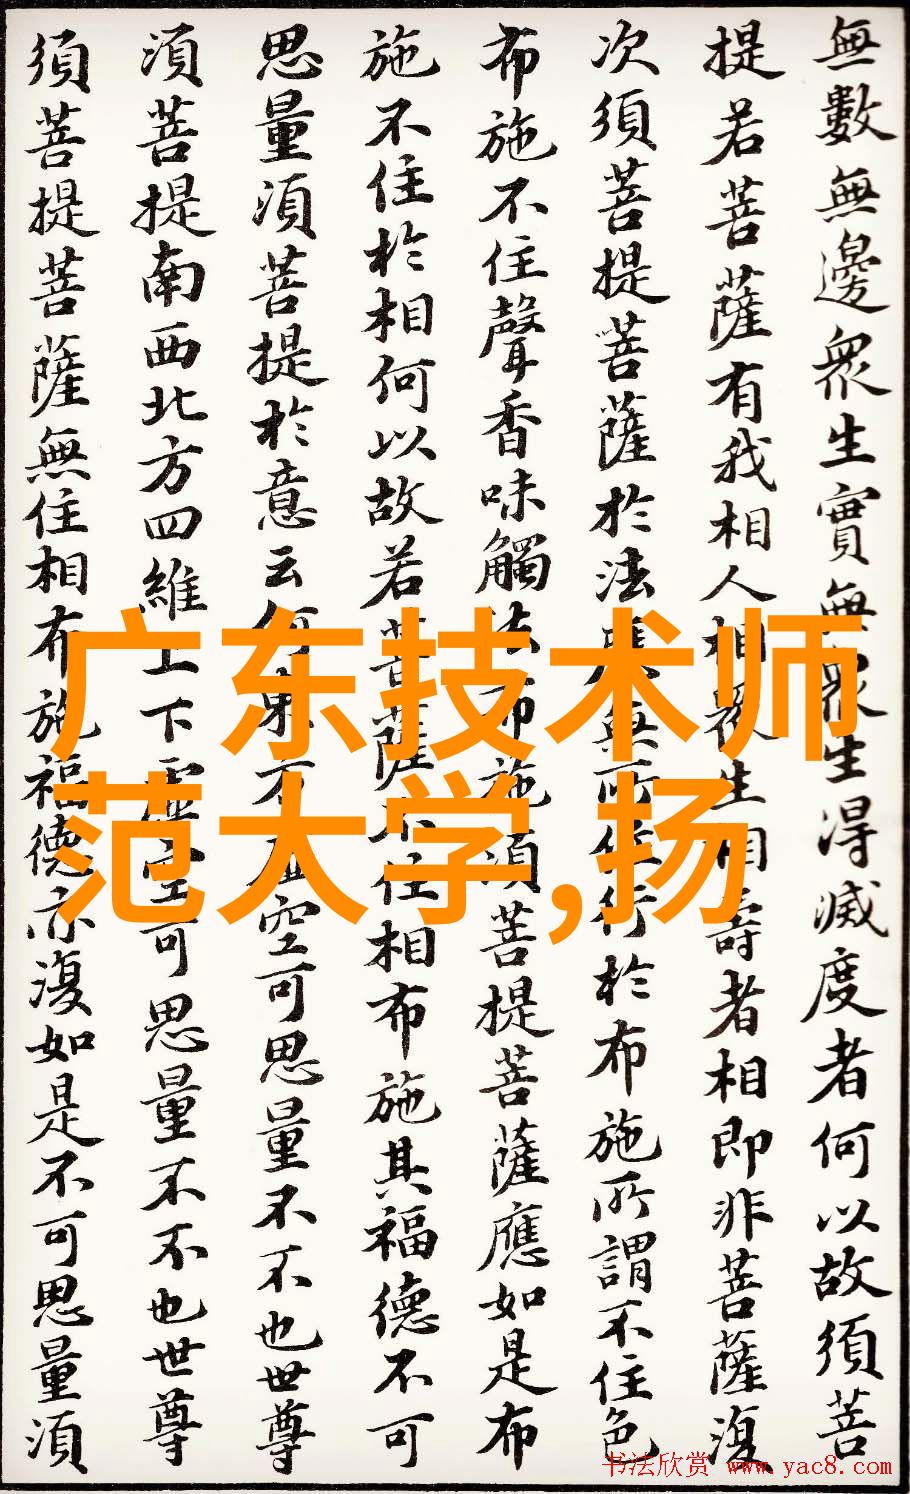 無數無邊衆生實無衆生得滅度者何以故須菩
提若菩薩有我相人相衆生相壽者相即非菩薩復
次須菩提菩薩於法應無所住行於布施所謂不住色
布施不住聲香味觸法布施須菩提菩薩應如是布
施不住於相何以故若菩薩不住相布施其福德不可
思量須菩提於意云何東方虛空可思量不不也世尊
須菩提南西北方四維上下虛空可思量不不也世尊
須菩提菩薩無住相布施福德亦復如是不可思量須
广东技术师
范大学,扬
书法欣赏 www.yac8.com